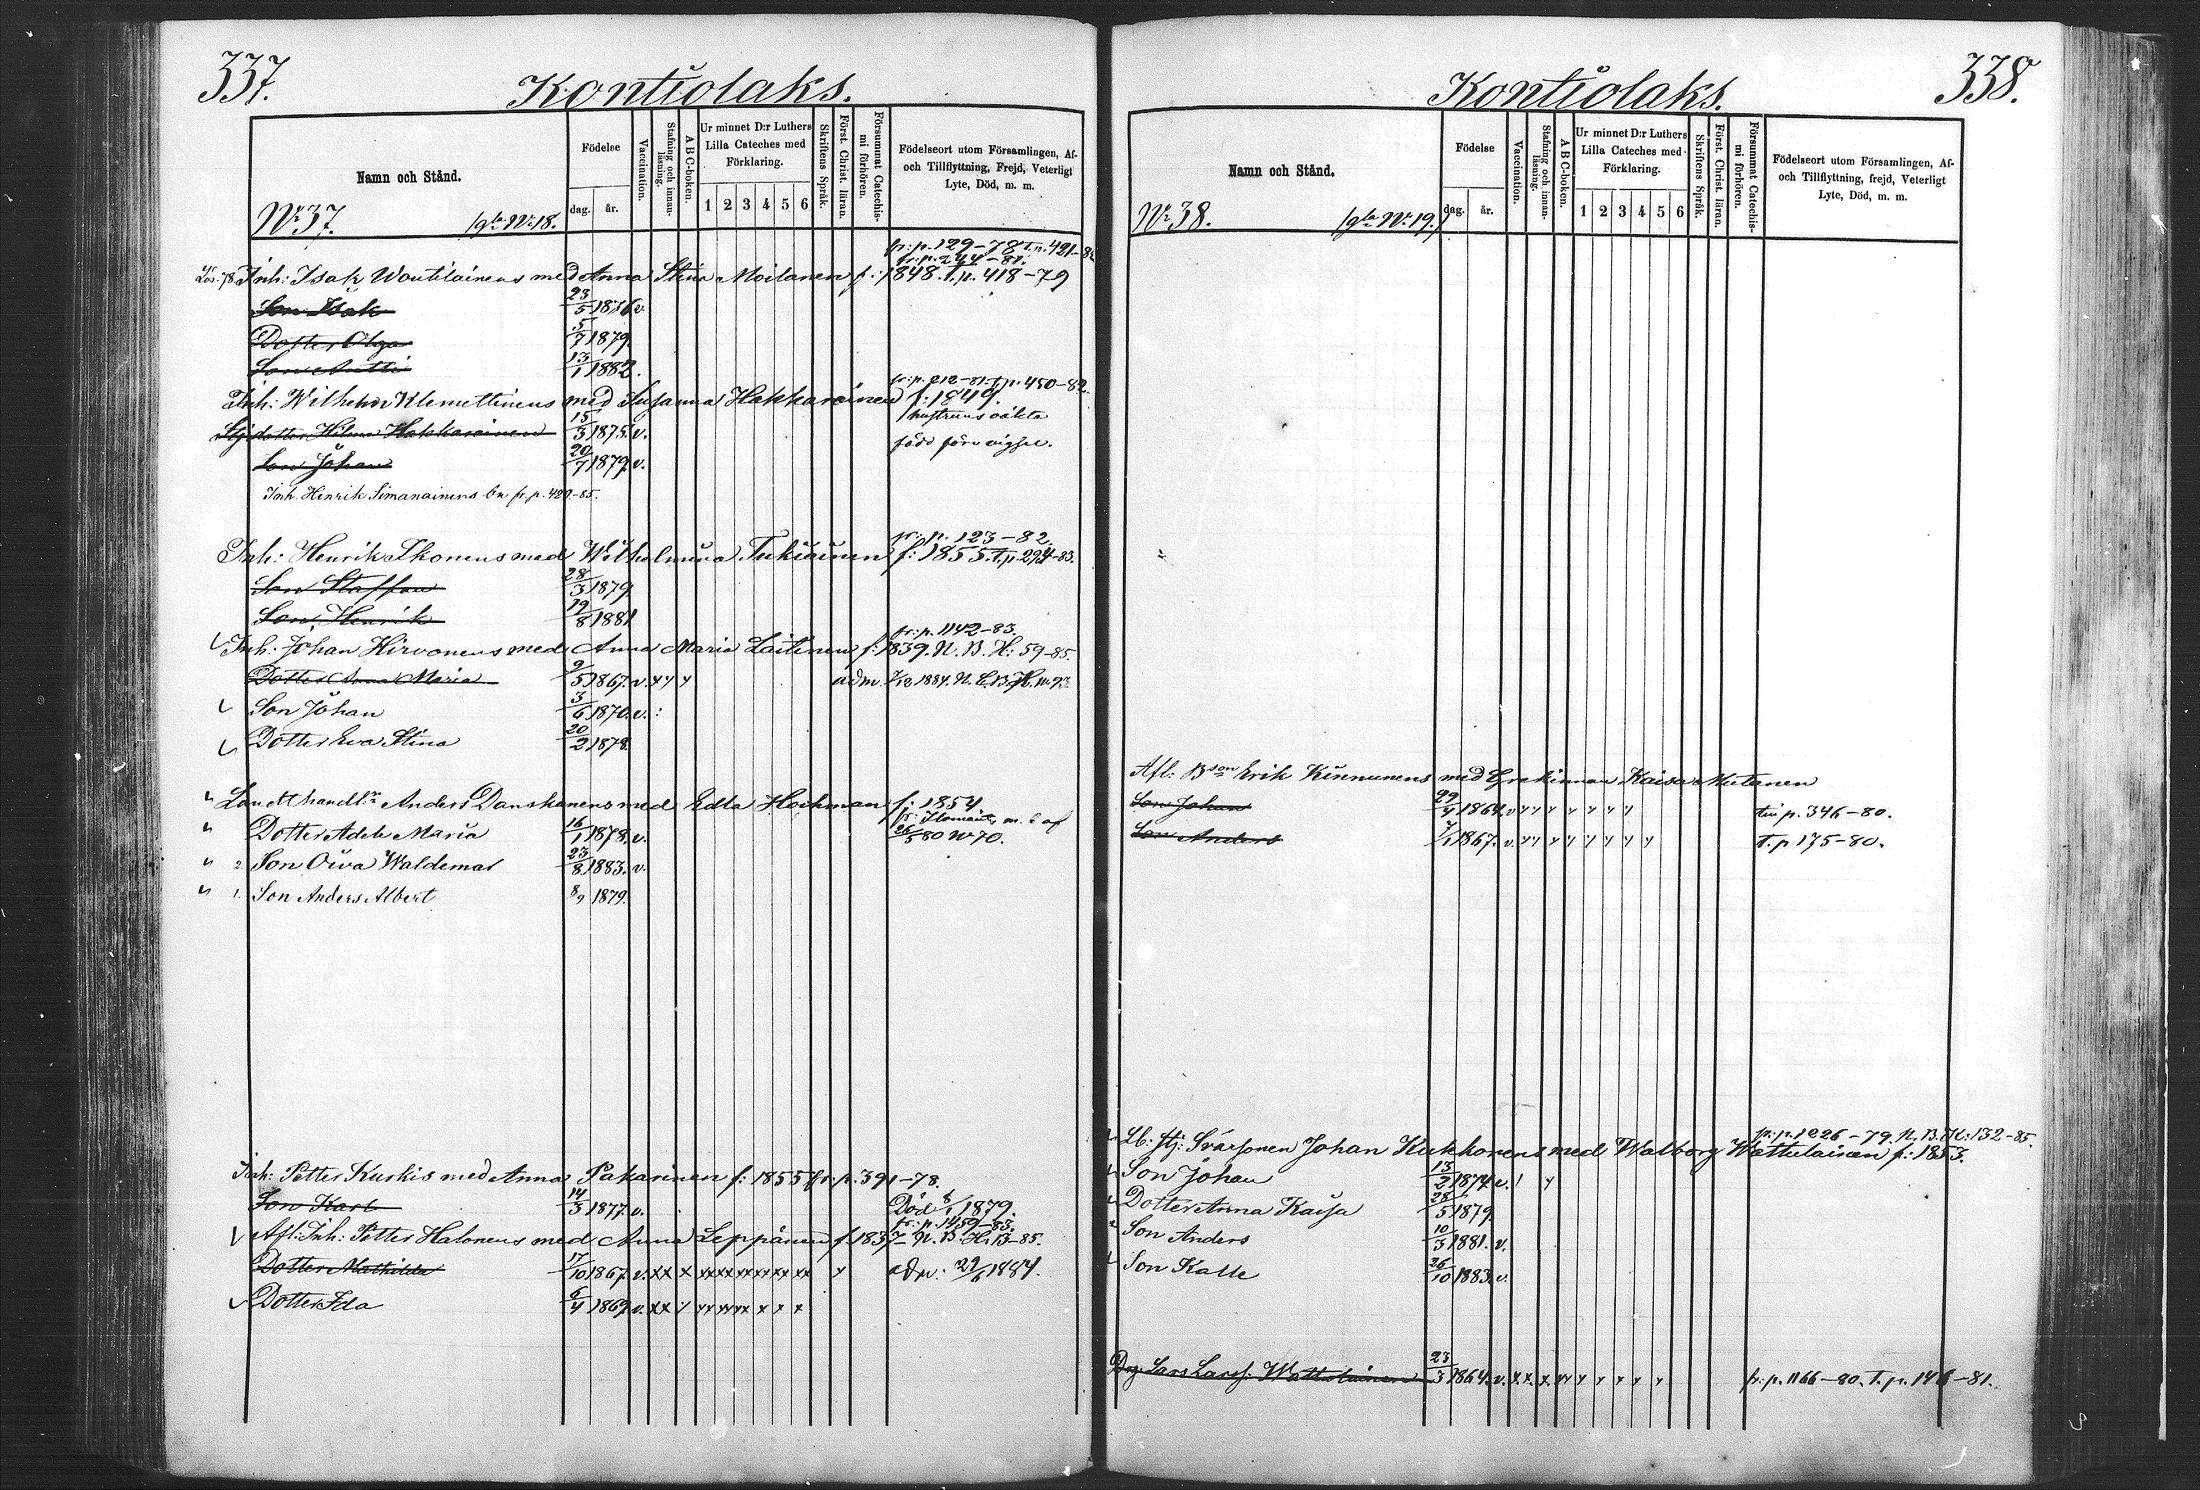 337.
Kontiolaks.
Namn och Stånd.
Födelse
dag. år.
Vaccination.
Stafning och innanläsning.
A B C-boken.
Ur minnet D:r Luthers Lilla Cateches med Förklaring.
1 2 3 4 5 6
Skriftens Språk.
Först. Christ. läran.
Försummat Catechismi förhören.
Födelseort utom Församlingen, Af- och Tillflyttning, Frejd, Veterligt Lyte, Död, m. m.
No 37. No 18.
fr: p. 129-78 T.p. 491-82
fr: p. 244-81.
Inh: Isak Woutilainens med Anna Stina Moilanen f: 1848. T.p. 418-79
Son Isak 23/5 1876 v.
Dotter Olga 5/7 1879.
Son Antti 13/1 1882.
fr: p. 212-81. T.p. 450-82.
Inh: Wilhelm Klemettinens med Susanna Hakkarainen f: 1849.
Stjfdotter Helena Hakkarainen 15/3 1875. v. hustruns oäkta
Son Johan 20/7 1879. v. född före vigsel.
Inh. Henrik Simanainens fr. p. 420-85.
fr: p. 123-82.
Inh: Henrik Ikonens med Wilhelmina Tukiainen f: 1855. T.p. 224-83.
Son Staffan 28/3 1879
Son Henrik 19/8 1881
fr: p. 1142-83.
Inh: Johan Hirvonens med Anna Maria Laitinen f: 1839. N. B. H: 59-85.
Dotter Anna Maria 9/5 1867. v. adm 1884. N.
Son Johan 3/6 1870. v.
Dotter Eva Stina 20/2 1878.
Landthandl:r Anders Danskanens med Edla Hoffman f: 1854.
fr: Ilomants, m. b af
Dotter Adele Maria 16/1 1878. v. 26/5 80 No 70.
2 Son Oiva Waldemar 23/8 1883. v.
1. Son Anders Albert 8/9 1879.
Inh: Petter Kurkis med Anna Pakarinen f: 1855 fr: p. 391-78.
Son Karl 14/3 1877. v. Död 8/1 1879.
fr: p. 1459-83.
Afl: Inh: Petter Halonens med Anna Leppänen f. 1837 N. B. H: 13-85.
Dotter Mathilda 17/10 1867. v. adm: 29/6 1884.
Dotter Ida 6/4 1869. v.
338.
Kontiolaks.
Namn och Stånd.
Födelse
dag. år.
Vaccination.
Stafning och innanläsning.
A B C-boken.
Ur minnet D:r Luthers Lilla Cateches med Förklaring.
1 2 3 4 5 6
Skriftens Språk.
Först. Christ. läran.
Försummat Catechismi förhören.
Födelseort utom Församlingen, Af- och Tillflyttning, frejd, Veterligt Lyte, Död, m. m.
No 38. No 19.
Afl: Bson Erik Kinnunens med Grekinnan Kaisa Mutanen
Son Johan 29/4 1864. v till p. 346-80.
Son Anders 7/1 1867. v. T. p 175-80.
fr: p. 1226-79. N. B. H: 132-85.
Lb: Stj: Svärsonen Johan Kukkonens med Walborg Wattulainen f: 1853.
Son Johan 13/2 1874. v.
Dotter Anna Kaisa 28/5 1879.
Son Anders 10/3 1881. v.
Son Kalle 26/10 1883. v.
Drg: Lars Larsf. Wattulainen 23/3 1864. v. fr: p. 1166-80. T. p. 146-81.